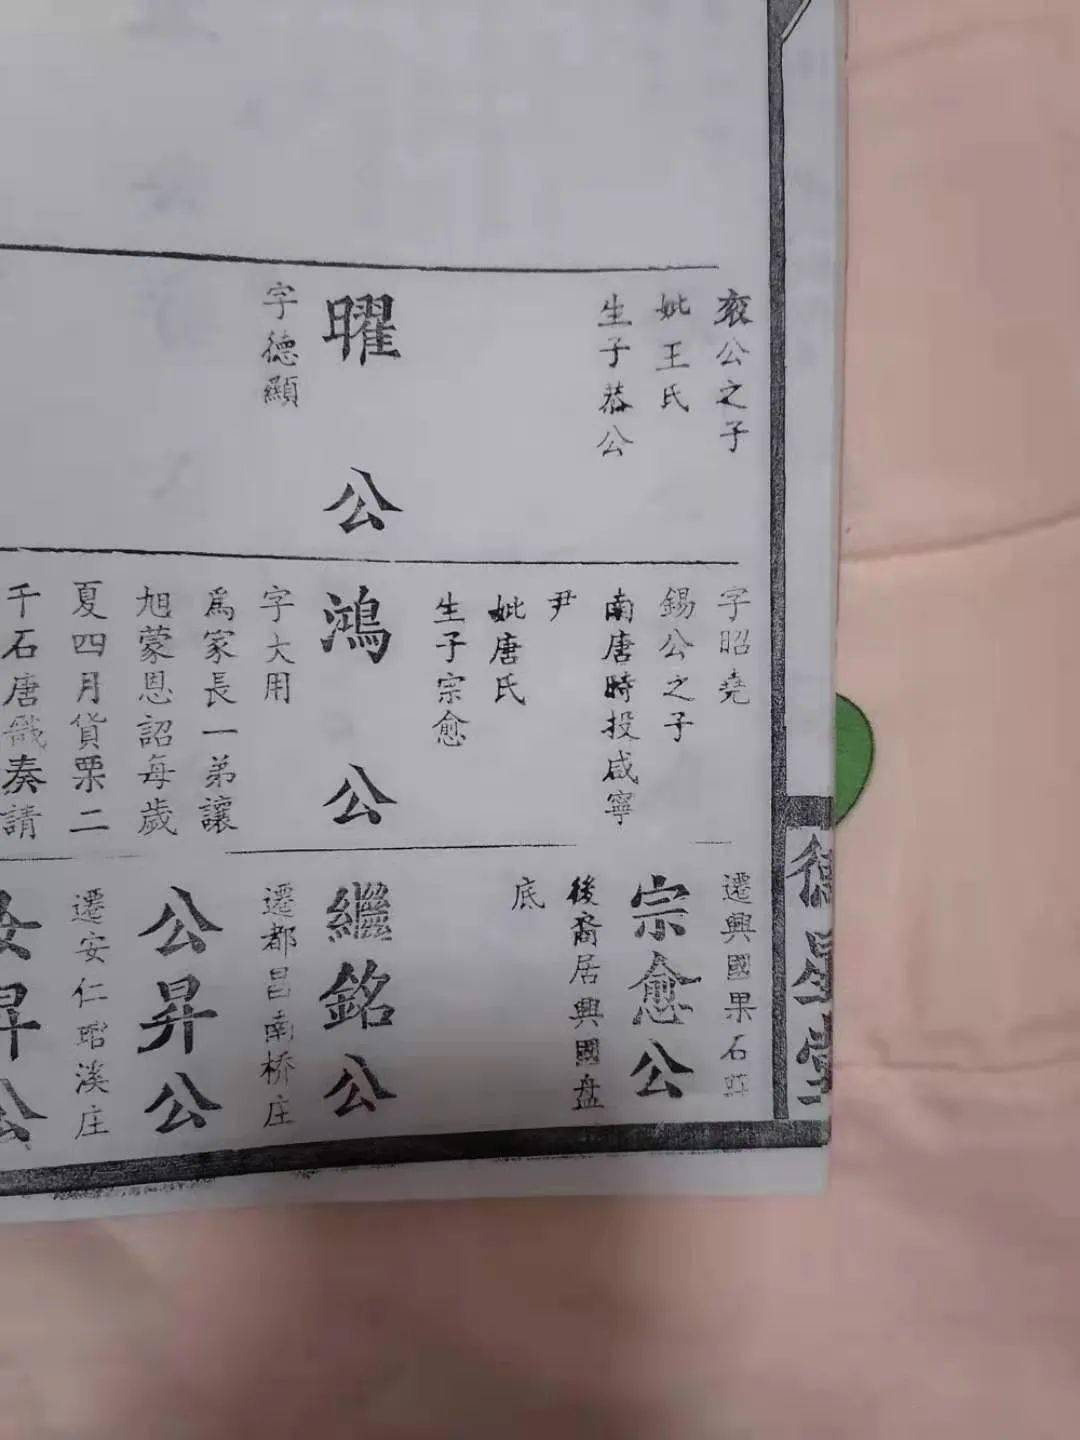 袞公之子
妣王氏
生子恭公
曜公
字德顯
字昭堯
錫公之子
南唐時投咸寧
尹
妣唐氏
生子宗愈
鴻公
字大用
爲家長一弟讓
旭蒙恩詔每歲
夏四月貸栗二
千石唐戩奏請
遷興國果石庄
宗愈公
後裔居興國盘
底
繼銘公
遷都昌南桥庄
公昇公
遷安仁瑎溪庄
汝昇公
德星堂